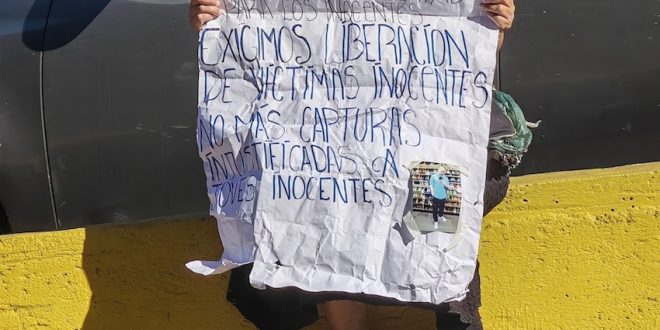 PARA LOS INOCENTES
EXIGIMOS LIBERACIÓN
DE VÍCTIMAS INOCENTES
NO MÁS CAPTURAS
INJUSTIFICADAS A
JOVES INOCENTES